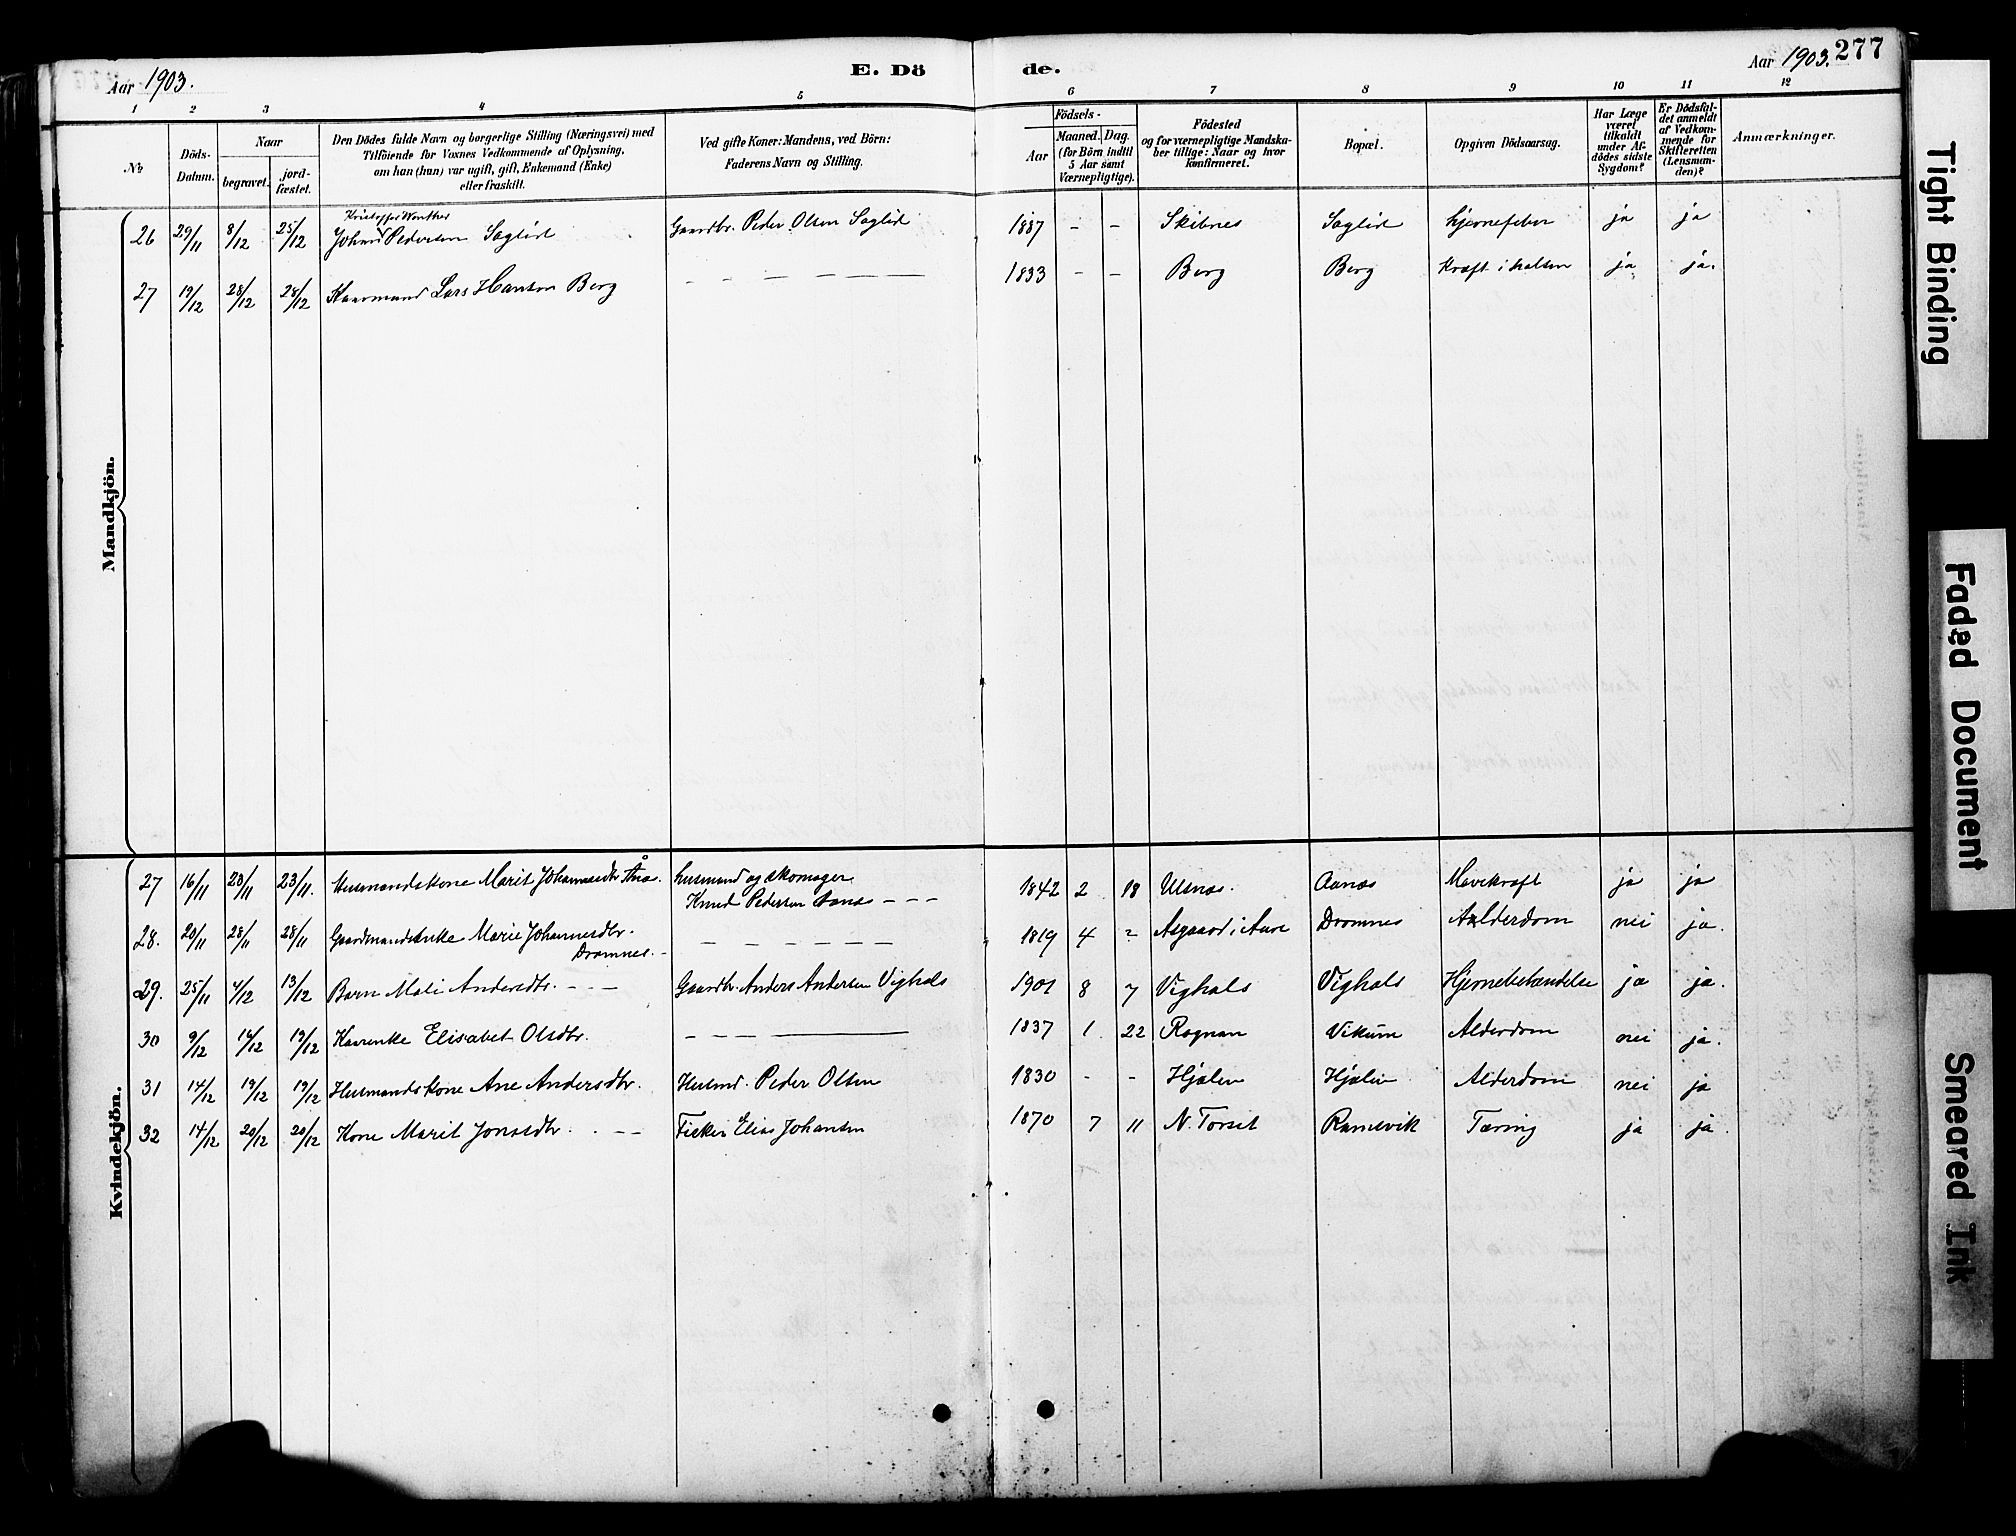 Aar 1903.
E. Dö de.
Aar 1903. 277
1 2 3 4 5 6 7 8 9 10 11 12
No
Döds-Datum.
Naar
begravet. jord-fæstet.
Den Dödes fulde Navn og borgerlige Stilling (Næringsvei) med
Tilföiende for Voxnes Vedkommende af Oplysning,
om han (hun) var ugift, gift, Enkemand (Enke)
eller fraskilt.
Ved gifte Koner: Mandens, ved Börn:
Faderens Navn og Stilling.
Födsels-
Aar Maaned. Dag.
(for Börn indtil
5 Aar samt
Værnepligtige).
Födested
og for værnepligtige Mandska-
ber tillige: Naar og hvor
konfirmeret.
Bopæl.
Opgiven Dödsaarsag.
Har Læge
været
tilkaldt
under Af-
dödes sidste
Sygdom?
Er Dödsfal-
det anmeldt
af Vedkom-
mende for
Skifteretten
(Lensman-
den)?
Anmærkninger.
Mandkjön.
26 29/11 8/12 25/12 Johan Pedersen Søglid Gaardbr. Peder Olsen Søglid 1887 - - Skibnes Søglid Hjernefeber ja ja
27 19/12 28/12 28/12 Kaarmand Lars Hansen Berg - - - - - - 1833 - - Berg Berg Kræft i halsen ja ja.
Kvindekjön.
27 16/11 23/11 23/11. Husmandskone Marit Johannesdtr. Husmand og skomager
Knud Pedersen Aanæs - - - 1842 2 18 Ulsnæs. Aanæs Mavekræft ja ja
28. 20/11 28/11 28/11 Gaardmandsenke Marie Johannesdtr.
Dromnes. - - - - - - - 1819 4 2 Aasgaard i Aure Dromnes Alderdom nei ja.
29. 25/11 4/12 13/12 Barn Mali Andersdtr. - - - Gaardbr. Anders Andersen Vighals 1901 8 7 Vighals Vighals Hjernebetændelse ja ja.
30 9/12 14/12 19/12 Kaarenke Elisabet Olsdtr. - - - - 1837 1. 22 Rognan Vikum Alderdom nei ja.
31 14/12 19/12 19/12 Husmandskone Ane Andersdtr. Husmd. Peder Olsen 1830 - - Hjælen Hjælen Alderdom nei ja
32 14/12 20/12 20/12 Kone Marit Jonasdtr. - - - Fisker Elias Johansen 1870 7 11 N. Torset Ramsvik Tæring ja ja.
Tight Binding
Faded Document
Smeared Ink